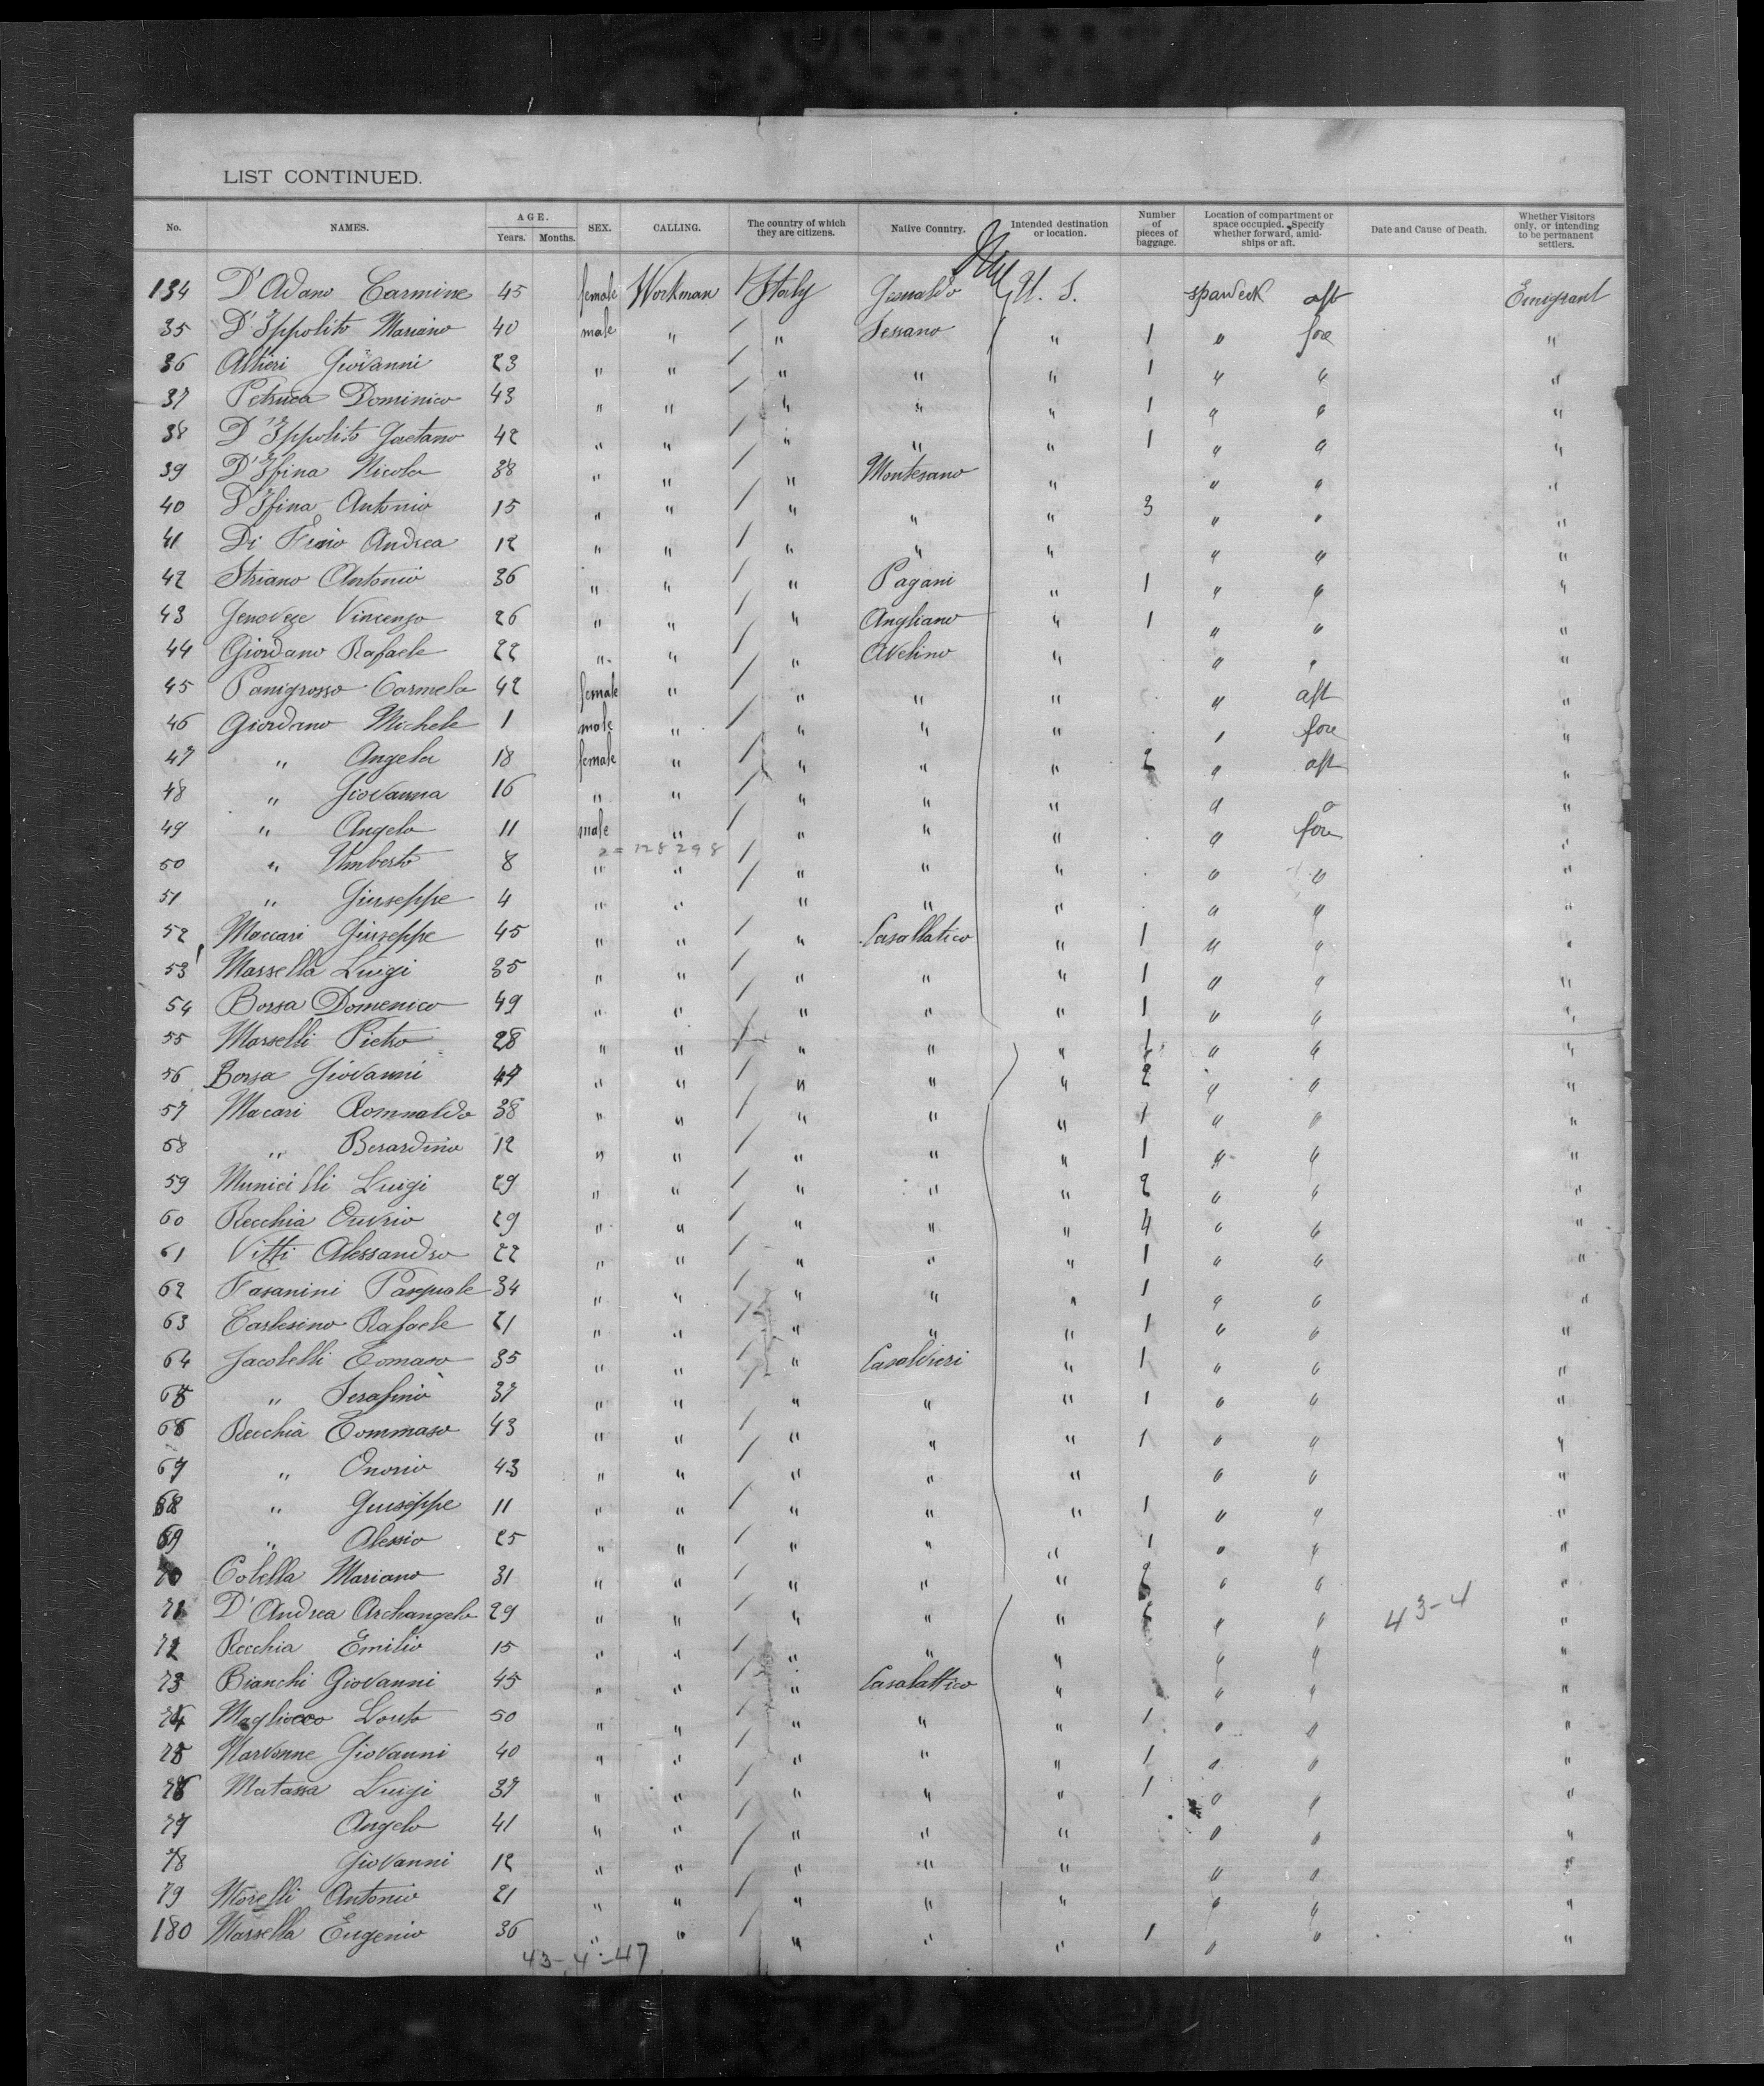 LIST CONTINUED.
No. NAMES. AGE. Years. Months. SEX. CALLING. The country of which they are citizens. Native Country. Intended destination or location. Number of pieces of baggage. Location of compartment or space occupied. Specify whether forward, amidships or aft. Date and Cause of Death. Whether Visitors only, or intending to be permanent settlers.
134 D'Adano Carmine 45 female Workman / Italy Gesualdo U. S. spardeck aft Emigrant
35 D'Ippolito Mariano 40 male " / " Sessano " 1 " fore "
36 Altieri Giovanni 23 " " / " " " 1 " " "
37 Petruca Dominico 43 " " / " " " 1 " " "
38 D'Ippolito Gaetano 42 " " / " " " 1 " " "
39 D'Ifina Nicola 38 " " / " Montesano " " " "
40 D'Ifina Antonio 15 " " / " " " 3 " " "
41 Di Andrea 12 " " / " " " " " "
42 Striano Antonio 36 " " / " Pagani " 1 " " "
43 Genoveze Vincenzo 26 " " / " Angliano " 1 " " "
44 Giordano Rafaele 22 " " / " Avelino " " " "
45 Panigrosso Carmela 42 female " / " " " " aft "
46 Giordano Michele 1 male " / " " " " fore "
47 " Angela 18 female " / " " " 2 " aft "
48 " Giovanna 16 " " / " " " " " "
49 " Angelo 11 male " / " " " " fore "
128298
50 " Umberto 8 " " / " " " " " "
51 " Giuseppe 4 " " / " " " " " "
52 Maccari Giuzeppe 45 " " / " Casallatico " 1 " " "
53 Massella Luigi 35 " " / " " " 1 " " "
54 Borsa Domenico 49 " " / " " " 1 " " "
55 Marselli Pietro 28 " " / " " " 1 " " "
56 Borsa Giovanni 47 " " / " " " 2 " " "
57 Macari Romualdo 38 " " / " " " 1 " " "
58 " Berardino 12 " " / " " " 1 " " "
59 Luigi 29 " " / " " " 2 " " "
60 Recchia 29 " " / " " " 4 " " "
61 Vitti Alessandro 22 " " / " " " 1 " " "
62 Fasanini Pasquale 34 " " / " " " 1 " " "
63 Carlesino Rafaele 21 " " / " " " 1 " " "
64 Jacobelli Tomaso 35 " " / " Casalvieri " 1 " " "
65 " Serafino 37 " " / " " " 1 " " "
66 Recchia Tommaso 43 " " / " " " 1 " " "
67 " Onorio 43 " " / " " " " " "
68 " Guiseppe 11 " " / " " " 1 " " "
69 " Alessio 25 " " / " " " 1 " " "
70 Colella Mariano 31 " " / " " " " " "
71 D'Andrea Archangelo 29 " " / " " " " " 43-4 "
72 Recchia Emilio 15 " " / " " " " " "
73 Bianchi Giovanni 45 " " / " Casalattico " " " "
74 Magliocco 50 " " / " " " 1 " " "
75 Giovanni 40 " " / " " " 1 " " "
76 Matassa Luigi 37 " " / " " " 1 " " "
77 Angelo 41 " " / " " " " " "
78 Giovanni 12 " " / " " " " " "
79 Morelli Antonio 21 " " / " " " " " "
180 Massella Eugenio 36 " " / " " " 1 " " "
43-4-47